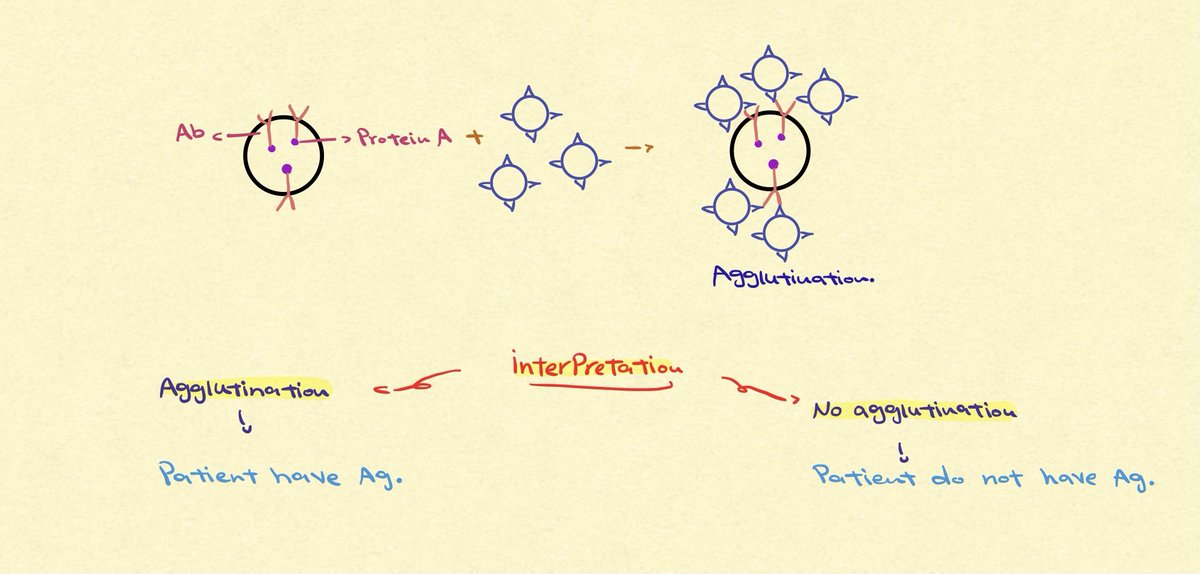 Ab
Protein A
+
Agglutination.
interPretation
Agglutination
No agglutination
Patient have Ag.
Patient do not have Ag.